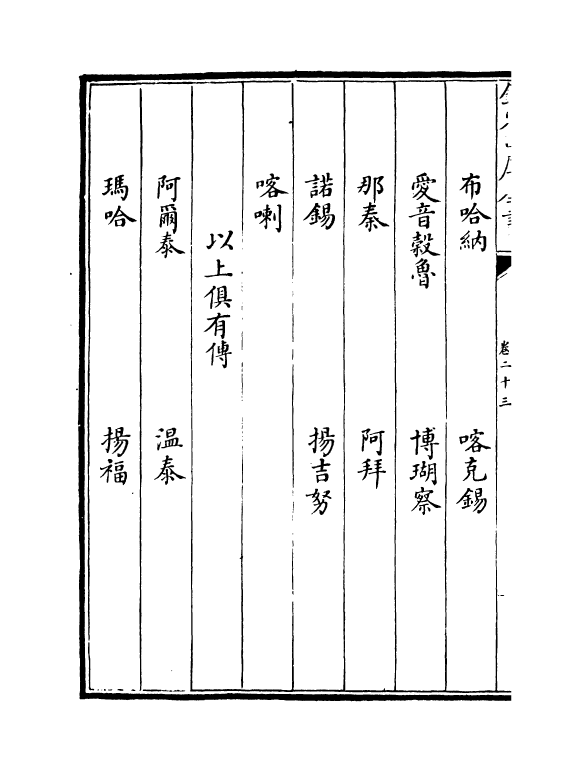 欽定四庫全書
卷二十三
布哈納 喀克錫
愛音穀魯 博瑚察
那秦 阿拜
諾錫 揚吉努
喀喇
以上俱有傳
阿爾泰 温泰
瑪哈 揚福